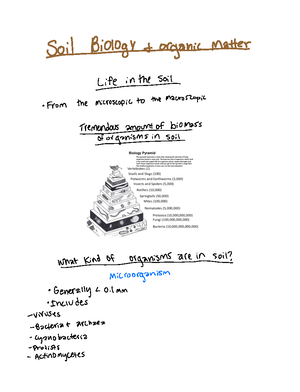 Soil Biology + organic matter
Life in the Soil
• From the microscopic to the macroscopic
Tremendous amount of biomass
of organisms in soil
Biology Pyramid
Vertebrates (1)
Snails and Slugs (100)
Potworms and Earthworms (3,000)
Insects and Spiders (5,000)
Rotifers (10,000)
Springtails (50,000)
Mites (100,000)
Nematodes (5,000,000)
Protozoa (10,000,000,000)
Fungi (100,000,000,000)
Bacteria (10,000,000,000,000)
What kind of organisms are in soil?
Microorganism
• Generally < 0.1mm
• Includes
- Viruses
- Bacteria + archaea
- Cyanobacteria
- Protists
- Actinomycetes